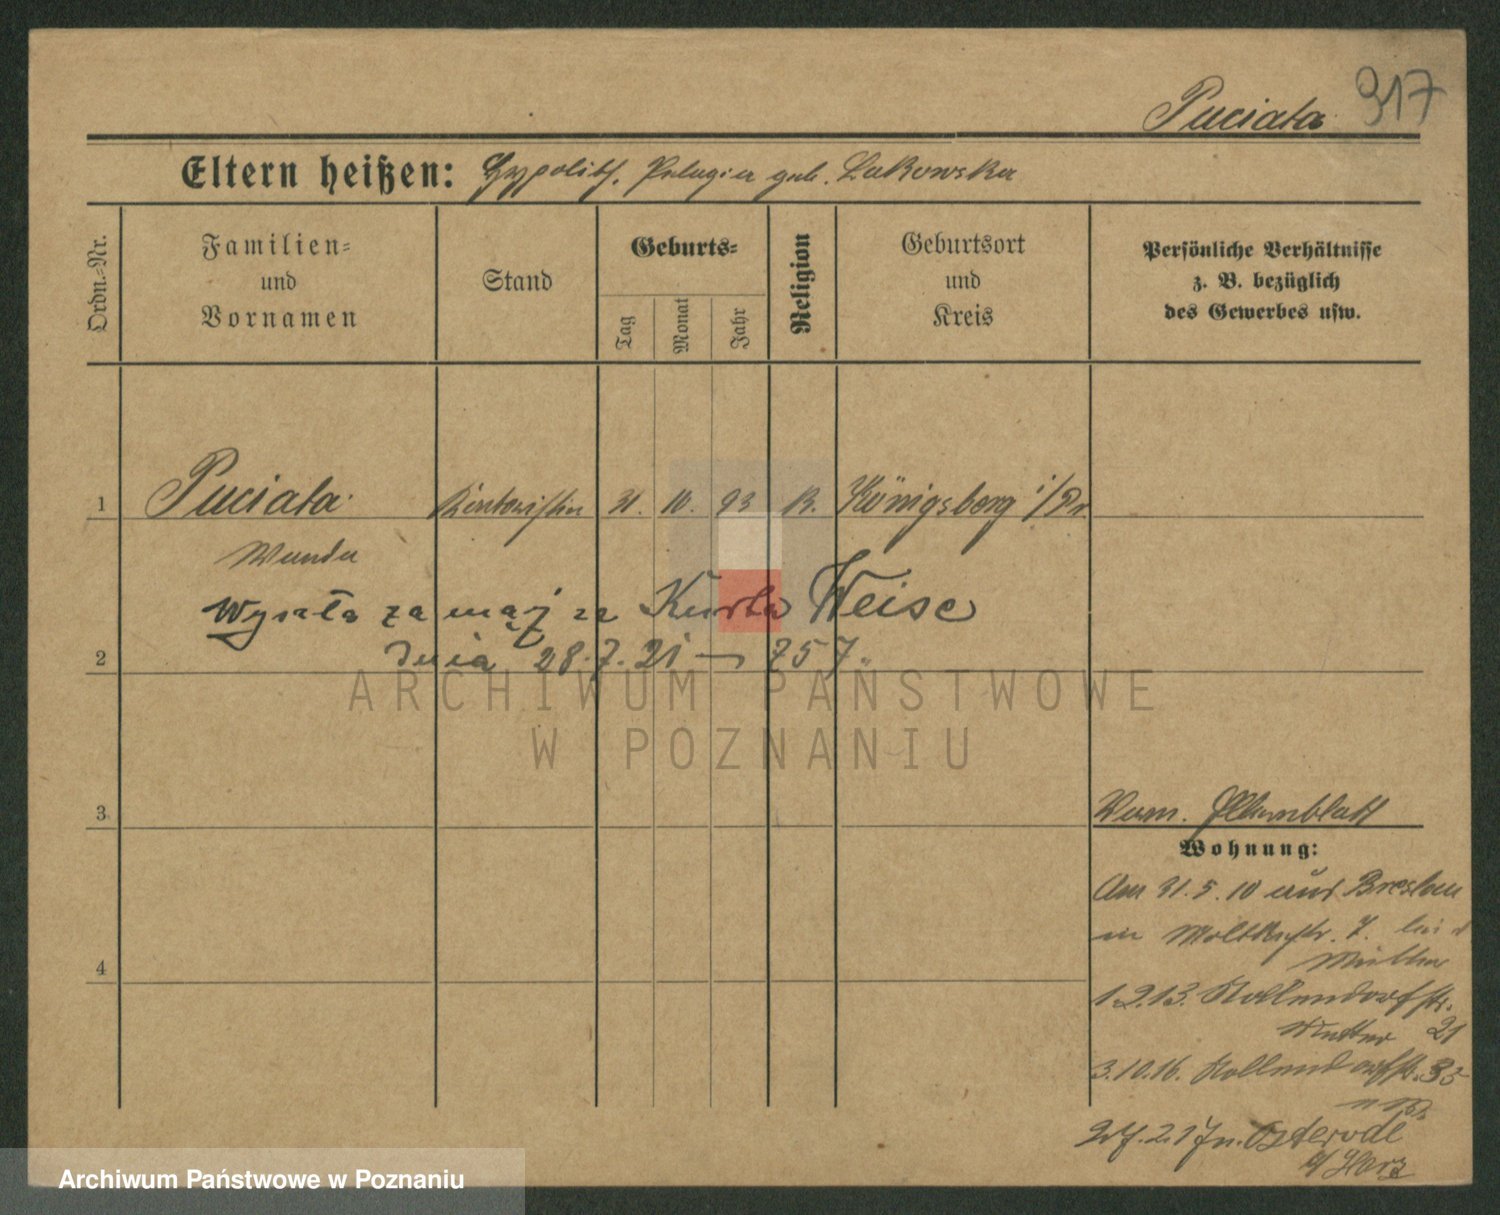 317
Puciata
Eltern heißen: Hypolith, Pelagia geb. Lukowska
Ordn.=Nr.
Familien=
und
Vornamen
Stand
Geburts=
Tag
Monat
Jahr
Religion
Geburtsort
und
Kreis
Persönliche Verhältnisse
z. B. bezüglich
des Gewerbes usw.
1 Puciata 31. 10. 93 K. Königsberg i/Pr.
Wanda
wyszła za mąż za Kurta Weise
2 dnia 28.7.21 – 757.
ARCHIWUM PAŃSTWOWE
W POZNANIU
3
Vorm. Elternblatt
Wohnung:
Am 31.5.10 aus Breslau
in Moltkestr. 7. bei d
Mutter
4
1.2.13. Hollendorffstr.
Mutter 21
3.10.16. Hollendorffstr. 35
21 n. Osterode
a/Harz
Archiwum Państwowe w Poznaniu